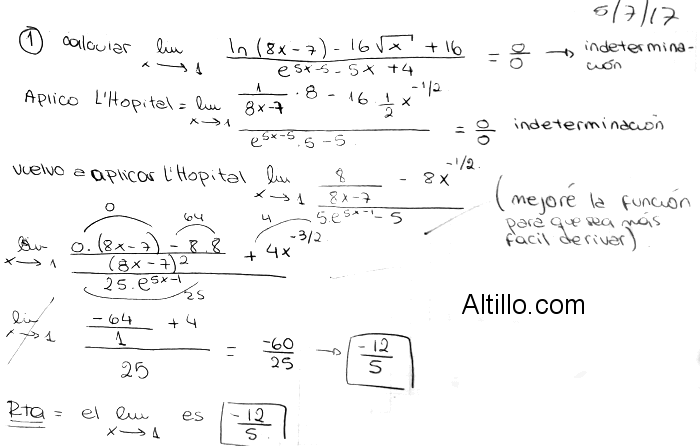 5/7/17
① calcular lim x→1 (ln(8x-7) - 16√x + 16) / (e^(5x-5) - 5x + 4) = 0/0 → indetermina-ción
Aplico L'Hopital = lim x→1 (1/(8x-7) · 8 - 16 · 1/2 x^(-1/2)) / (e^(5x-5) · 5 - 5) = 0/0 indeterminación
vuelvo a aplicar L'Hopital lim x→1 (8/(8x-7) - 8x^(-1/2)) / (5.e^(5x-1) - 5)
(mejoré la función
para que sea más
facil derivar)
0 64 4
lim x→1 ((0.(8x-7) - 8.8)/(8x-7)^2 + 4x^(-3/2)) / (25.e^(5x-1))
25
Altillo.com
lim x→1 (-64/1 + 4) / 25 = -60/25 → -12/5
Rta = el lim x→1 es -12/5